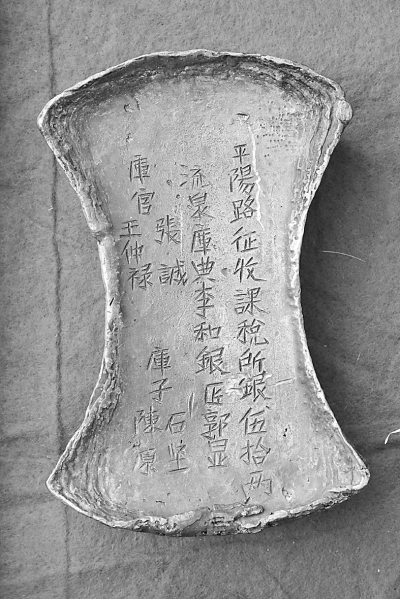 平陽路征收課税所銀伍拾两
流泉庫典李和銀匠郭显
庫官
張誠
王仲禄
庫子
石坚
陳原